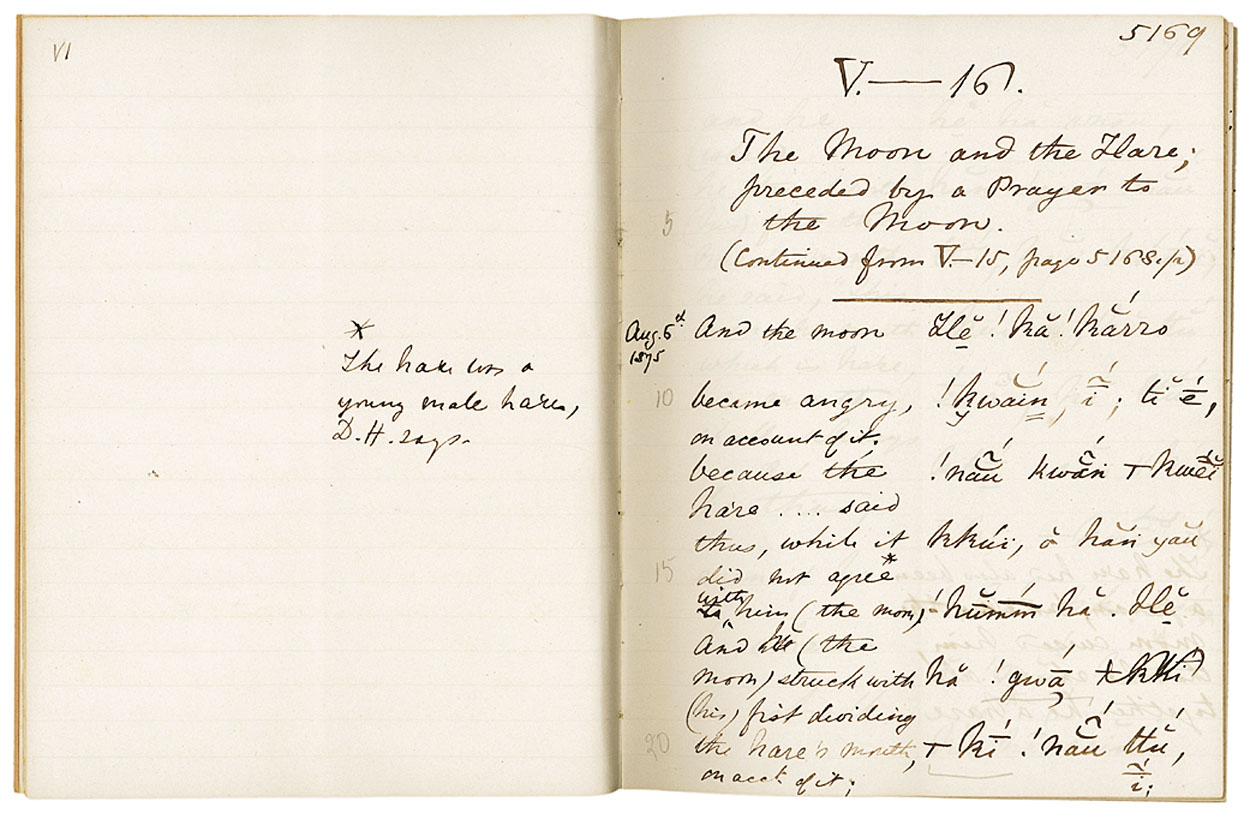 VI
*
The hare was a
young male hare,
D.H. says.
5169
V.—16.
The Moon and the Hare;
preceded by a Prayer to
5 the Moon.
(Continued from V.—15, page 5168.)
Aug. 6th And the moon Hĕ̱ !kă !kắrro
1875
10 became angry, !kwăín, ĩ́; tĭ é̱,
on account of it,
because the !nắ̃ŭ kwắn
hare .... said
thus, while it kkúi, ŏ hăń yău
15 did not agree*
with him (the moon) !hŭ́mm hă. Hĕ̱
And he (the
moon) struck with hă !gwá̱
(his) fist dividing
20 the hare's mouth, !nắ̃ŭ ttú,
on acct of it; ĩ́;